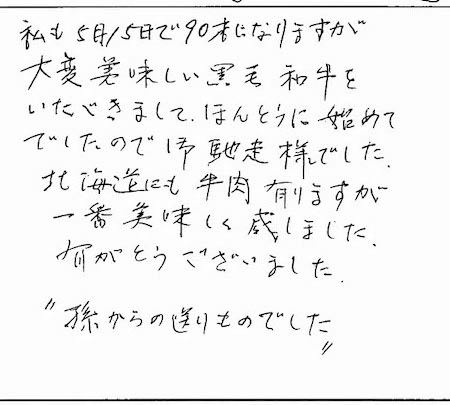 私も5月15日で90才になりますが
大変美味しい黒毛和牛を
いたぞきまして、ほんとうに始めて
でしたので御馳走様でした。
北海道にも牛肉有りますが
一番美味しく感しました。
有がとうございました。
〃孫からの送りものでした〃